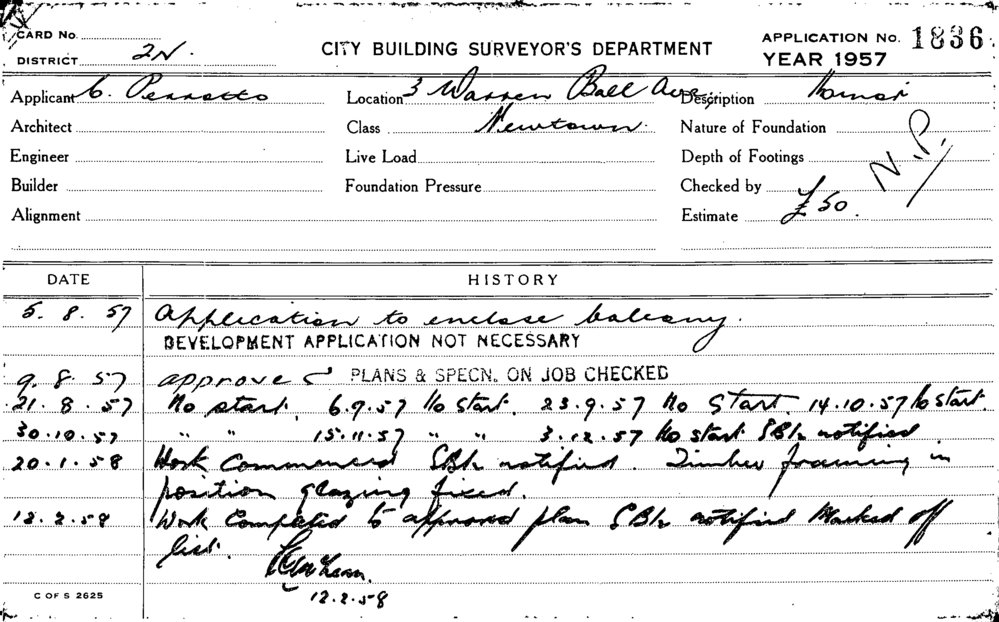 CARD No.
DISTRICT 2N.
CITY BUILDING SURVEYOR'S DEPARTMENT
APPLICATION No. 1836
YEAR 1957
Applicant C. Perrotto Location 3 Warren Ball Ave, Description Minor
Architect Class Newtown. Nature of Foundation
Engineer Live Load Depth of Footings N.P.
Builder Foundation Pressure Checked by
Alignment Estimate £50.
DATE HISTORY
5. 8. 57 Application to enclose balcony.
DEVELOPMENT APPLICATION NOT NECESSARY
9. 8. 57 approved PLANS & SPECN. ON JOB CHECKED
21. 8. 57 No start. 6.9.57 No Start. 23.9.57 No Start. 14.10.57 No Start.
30.10.57 " " 15.11.57 " " 3.12.57 No start notified
20.1.58 Work Commenced notified. Timber framing in
position glazing fixed.
12.2.58 Work Completed to approved plan notified Marked off
list.
12.2.58
C OF S 2625